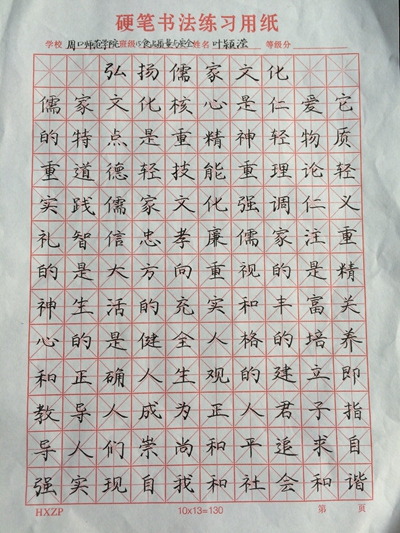 硬笔书法练习用纸
学校 周口师范学院 班级 食品质量与安全 姓名 叶颖滢 等级分
弘扬儒家文化
儒家文化核心是仁爱它
的特点是重精神轻物质
重道德轻技能重理论轻
实践儒家文化强调仁义
礼智信忠孝廉儒家注重
的是大方向重视的是精
神生活的充实和丰富关
心的是健全人格的培养
和正确人生观的建立即
教导人成为正人君子指
导人们崇尚和平追求自
强实现自我和社会和谐
HXZP 10x13=130 第 页